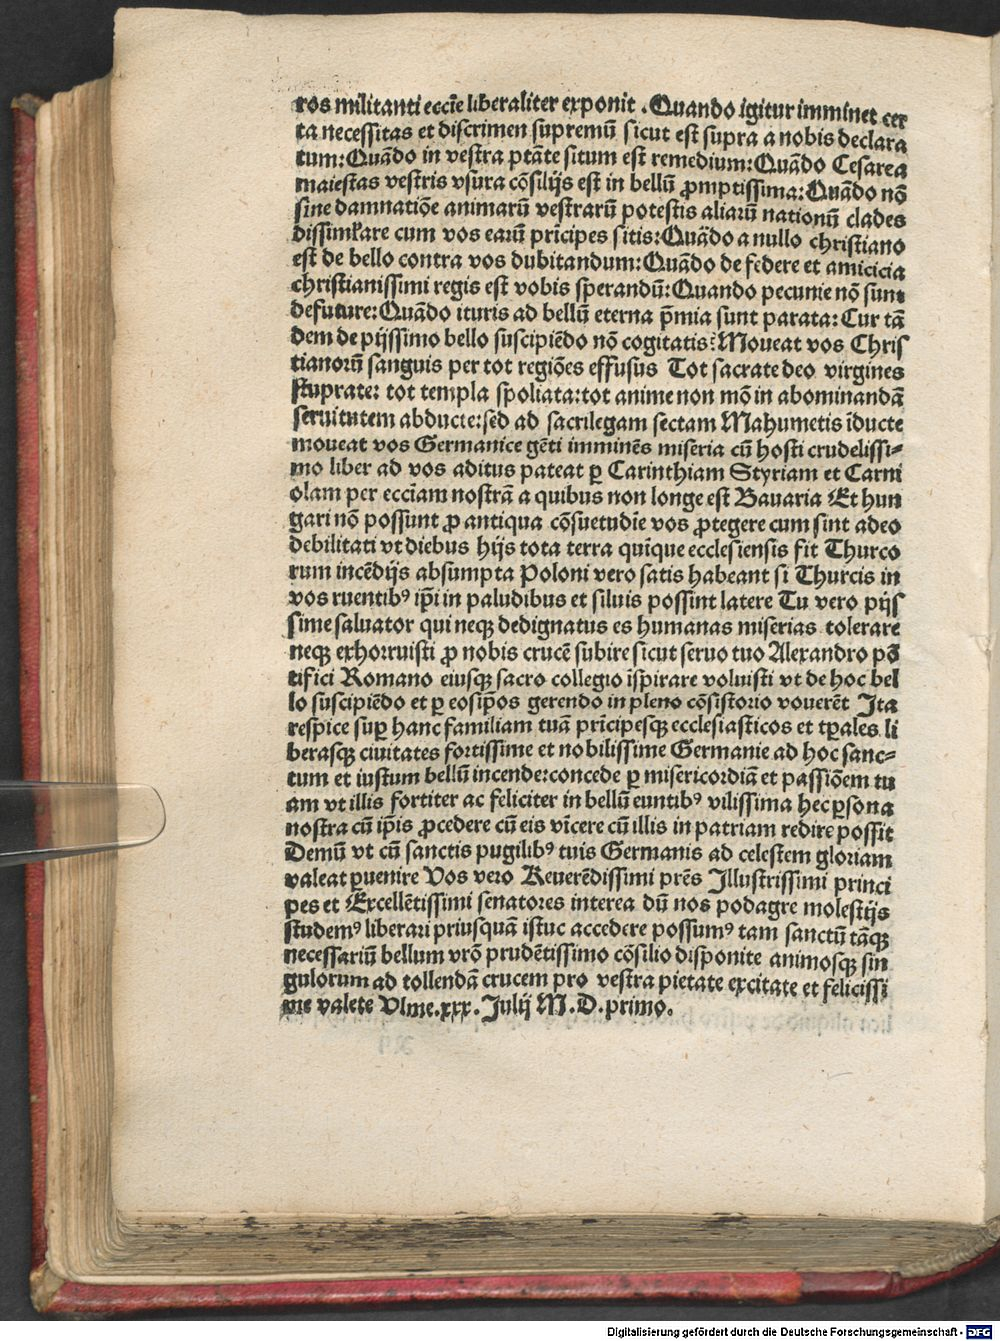 ros militanti eccl̄ie liberaliter exponit . Quando igitur imminet cer
ta necessitas et discrimen supremū sicut est supra a nobis declara
tum: Quādo in vestra ptāte situm est remedium: Quādo Cesarea
maiestas vestris vsura cōsilijs est in bellū ꝓmptissima: Quādo nō
sine damnatiōe animarū vestrarū potestis aliarū nationū clades
dissimĺare cum vos earū prīcipes sitis: Quādo a nullo christiano
est de bello contra vos dubitandum: Quādo de federe et amicicia
christianissimi regis est vobis sperandū: Quando pecunie nō sunt
defuture: Quādo ituris ad bellū eterna p̄mia sunt parata: Cur tā
dem de pijssimo bello suscipiēdo nō cogitatis: Moueat vos Chris
tianorū sanguis per tot regiōes effusus Tot sacrate deo virgines
stuprate: tot templa spoliata: tot anime non mō in abominandā
seruitutem abducte: sed ad sacrilegam sectam Mahumetis īducte
moueat vos Germanice gēti imminēs miseria cū hosti crudelissi-
mo liber ad vos aditus pateat ꝑ Carinthiam Styriam et Carni
olam per eccīam nostrā a quibus non longe est Bauaria Et hun
gari nō possunt ꝓ antiqua cōsuetudīe vos ꝓtegere cum sint adeo
debilitati vt diebus hijs tota terra quīque ecclesiensis fit Thurco
rum incēdijs absumpta Poloni vero satis habeant si Thurcis in
vos ruentibꝰ ip̄i in paludibus et siluis possint latere Tu vero pijs
sime saluator qui neqꝫ dedignatus es humanas miserias tolerare
neqꝫ exhorruisti ꝓ nobis crucē subire sicut seruo tuo Alexandro pō
tifici Romano eiusqꝫ sacro collegio īspirare voluisti vt de hoc bel
lo suscipiēdo et ꝑ eosip̄os gerendo in pleno cōsistorio vouerēt Ita
respice suꝑ hanc familiam tuā prīcipesqꝫ ecclesiasticos et tꝑales li
berasqꝫ ciuitates fortissime et nobilissime Germanie ad hoc sanc-
tum et iustum bellū incende: concede ꝑ misericordiā et passiōem tu
am vt illis fortiter ac feliciter in bellū euntibꝰ vilissima hec ꝑsona
nostra cū ip̄is ꝓcedere cū eis vīcere cū illis in patriam redire possit
Demū vt cū sanctis pugilibꝰ tuis Germanis ad celestem gloriam
valeat ꝑuenire Vos vero Reuerēdissimi prēs Illustrissimi princi
pes et Excellētissimi senatores interea dū nos podagre molestijs
studemꝰ liberari priusquā istuc accedere possumꝰ tam sanctū tāqꝫ
necessariū bellum vrō prudētissimo cōsilio disponite animosqꝫ sin
gulorum ad tollendā crucem pro vestra pietate excitate et felicissi
me valete Vlme.xxx. Julij M.D.primo.
Digitalisierung gefördert durch die Deutsche Forschungsgemeinschaft - DFG